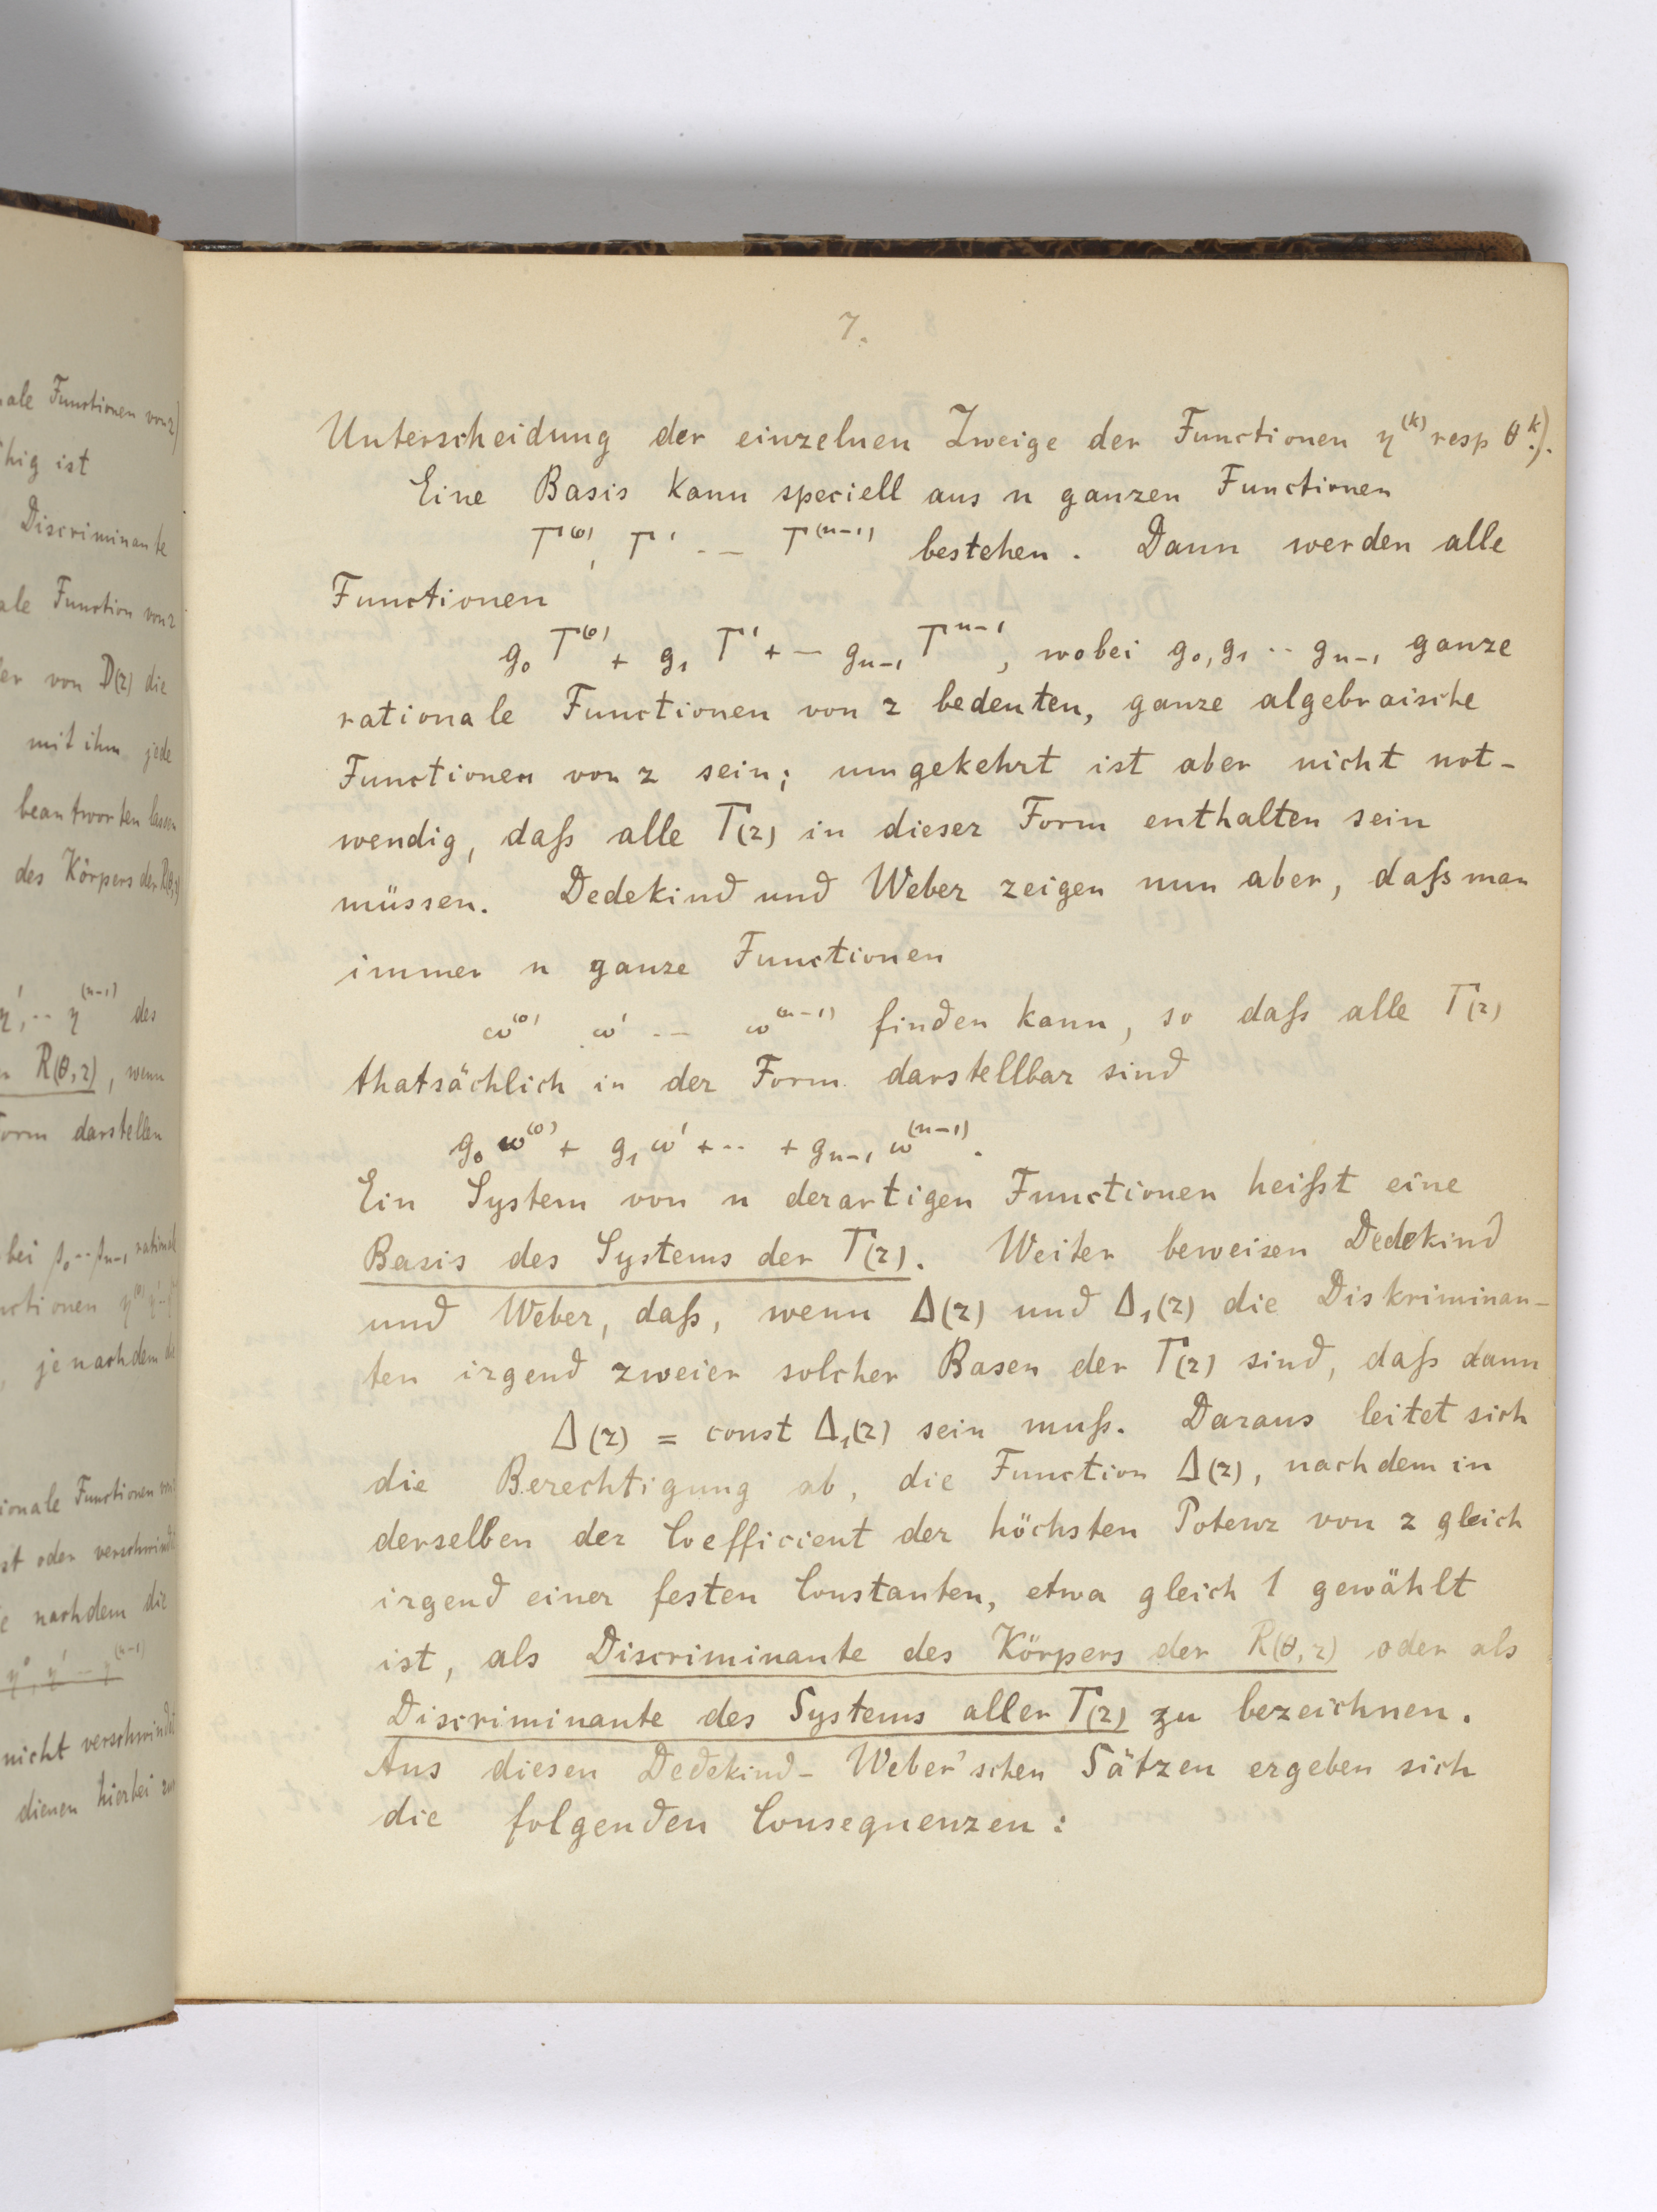 ale Functionen von z)
hig ist
Discriminante
ale Function von z
er von D(z) die
mit ihm jede
beantworten lassen
des Körpers der R(θ,z)
η', ·· η^(n-1) des
R(θ,z), wenn
orm darstellen
bei
ctionen
je nachdem
ionale Functionen
st oder verschwindet
nachdem die
nicht verschwindet
dienen hierbei zur
7.
Unterscheidung der einzelnen Zweige der Functionen η^(k) resp θ^k).
Eine Basis kann speciell aus n ganzen Functionen
Γ^(0), Γ' -- Γ^(n-1) bestehen. Dann werden alle
Functionen
g₀ Γ^(0) + g₁ Γ' + -- gₙ₋₁ Γ^n-1, wobei g₀, g₁ ·· gₙ₋₁ ganze
rationale Functionen von z bedeuten, ganze algebraische
Functionen von z sein; umgekehrt ist aber nicht not-
wendig, daß alle Γ(z) in dieser Form enthalten sein
müssen. Dedekind und Weber zeigen nun aber, daß man
immer n ganze Functionen
ω^(0) ω' -- ω^(n-1) finden kann, so daß alle Γ(z)
thatsächlich in der Form darstellbar sind
g₀ ω^(0) + g₁ ω' + ·· + gₙ₋₁ ω^(n-1).
Ein System von n derartigen Functionen heißt eine
Basis des Systems der Γ(z). Weiter beweisen Dedekind
und Weber, daß, wenn Δ(z) und Δ₁(z) die Diskriminan-
ten irgend zweier solcher Basen der Γ(z) sind, daß dann
Δ(z) = const Δ₁(z) sein muß. Daraus leitet sich
die Berechtigung ab, die Function Δ(z), nachdem in
derselben der Coefficient der höchsten Potenz von z gleich
irgend einer festen Constanten, etwa gleich 1 gewählt
ist, als Discriminante des Körpers der R(θ,z) oder als
Discriminante des Systems aller Γ(z) zu bezeichnen.
Aus diesen Dedekind-Weber'schen Sätzen ergeben sich
die folgenden Consequenzen: